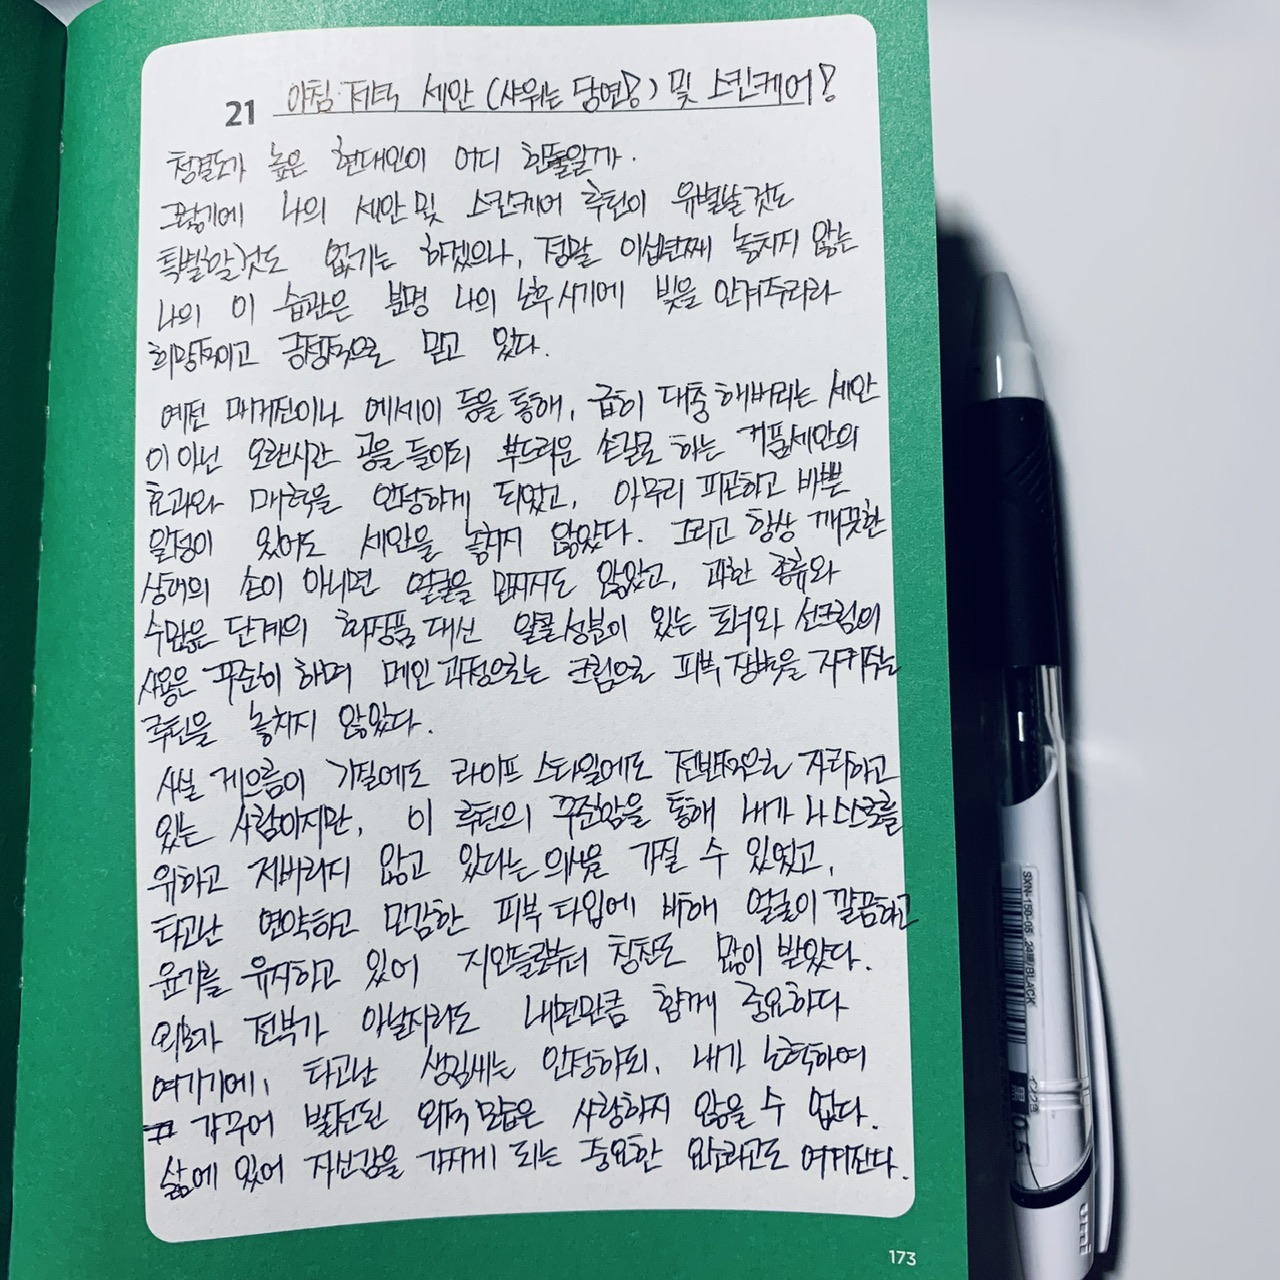 21 아침·저녁 세안 (샤워는 당연!) 및 스킨케어!
청결도가 높은 현대인이 어디 한둘일까.
그렇기에 나의 세안 및 스킨케어 루틴이 유별날것도
특별할것도 없기는 하겠으나, 정말 이십년째 놓치지 않는
나의 이 습관은 분명 나의 노후시기에 빛을 안겨주리라
희망적이고 긍정적으로 믿고 있다.
예전 매거진이나 에세이 등을 통해, 급히 대충 해버리는 세안
이 아닌 오랜시간 공을 들이되 부드러운 손길로 하는 거품세안의
효과와 매력을 인정하게 되었고, 아무리 피곤하고 바쁜
일정이 있어도 세안을 놓치지 않았다. 그리고 항상 깨끗한
상태의 손이 아니면 얼굴을 만지지도 않았고, 과한 종류와
수많은 단계의 화장품 대신 알콜성분이 있는 토너와 선크림의
사용은 꾸준히 하며 메인 과정으로는 크림으로 피부 장벽을 지켜주는
루틴을 놓치지 않았다.
사실 게으름이 기질에도 라이프 스타일에도 전반적으로 자리하고
있는 사람이지만, 이 루틴의 꾸준함을 통해 내가 나 스스로를
위하고 저버리지 않고 있다는 의식을 가질 수 있었고,
타고난 연약하고 민감한 피부 타입에 비해 얼굴이 깔끔하고
윤기를 유지하고 있어 지인들로부터 칭찬도 많이 받았다.
외모가 전부가 아닐지라도 내면만큼 함께 중요하다
여기기에, 타고난 생김새는 인정하되, 내가 노력하여
가꾸어 발전된 외적 모습은 사랑하지 않을 수 없다.
삶에 있어 자신감을 가지게 되는 중요한 요소라고도 여겨진다.
173
SXN-150-05 24黒/BLACK
黒 0.5
uni